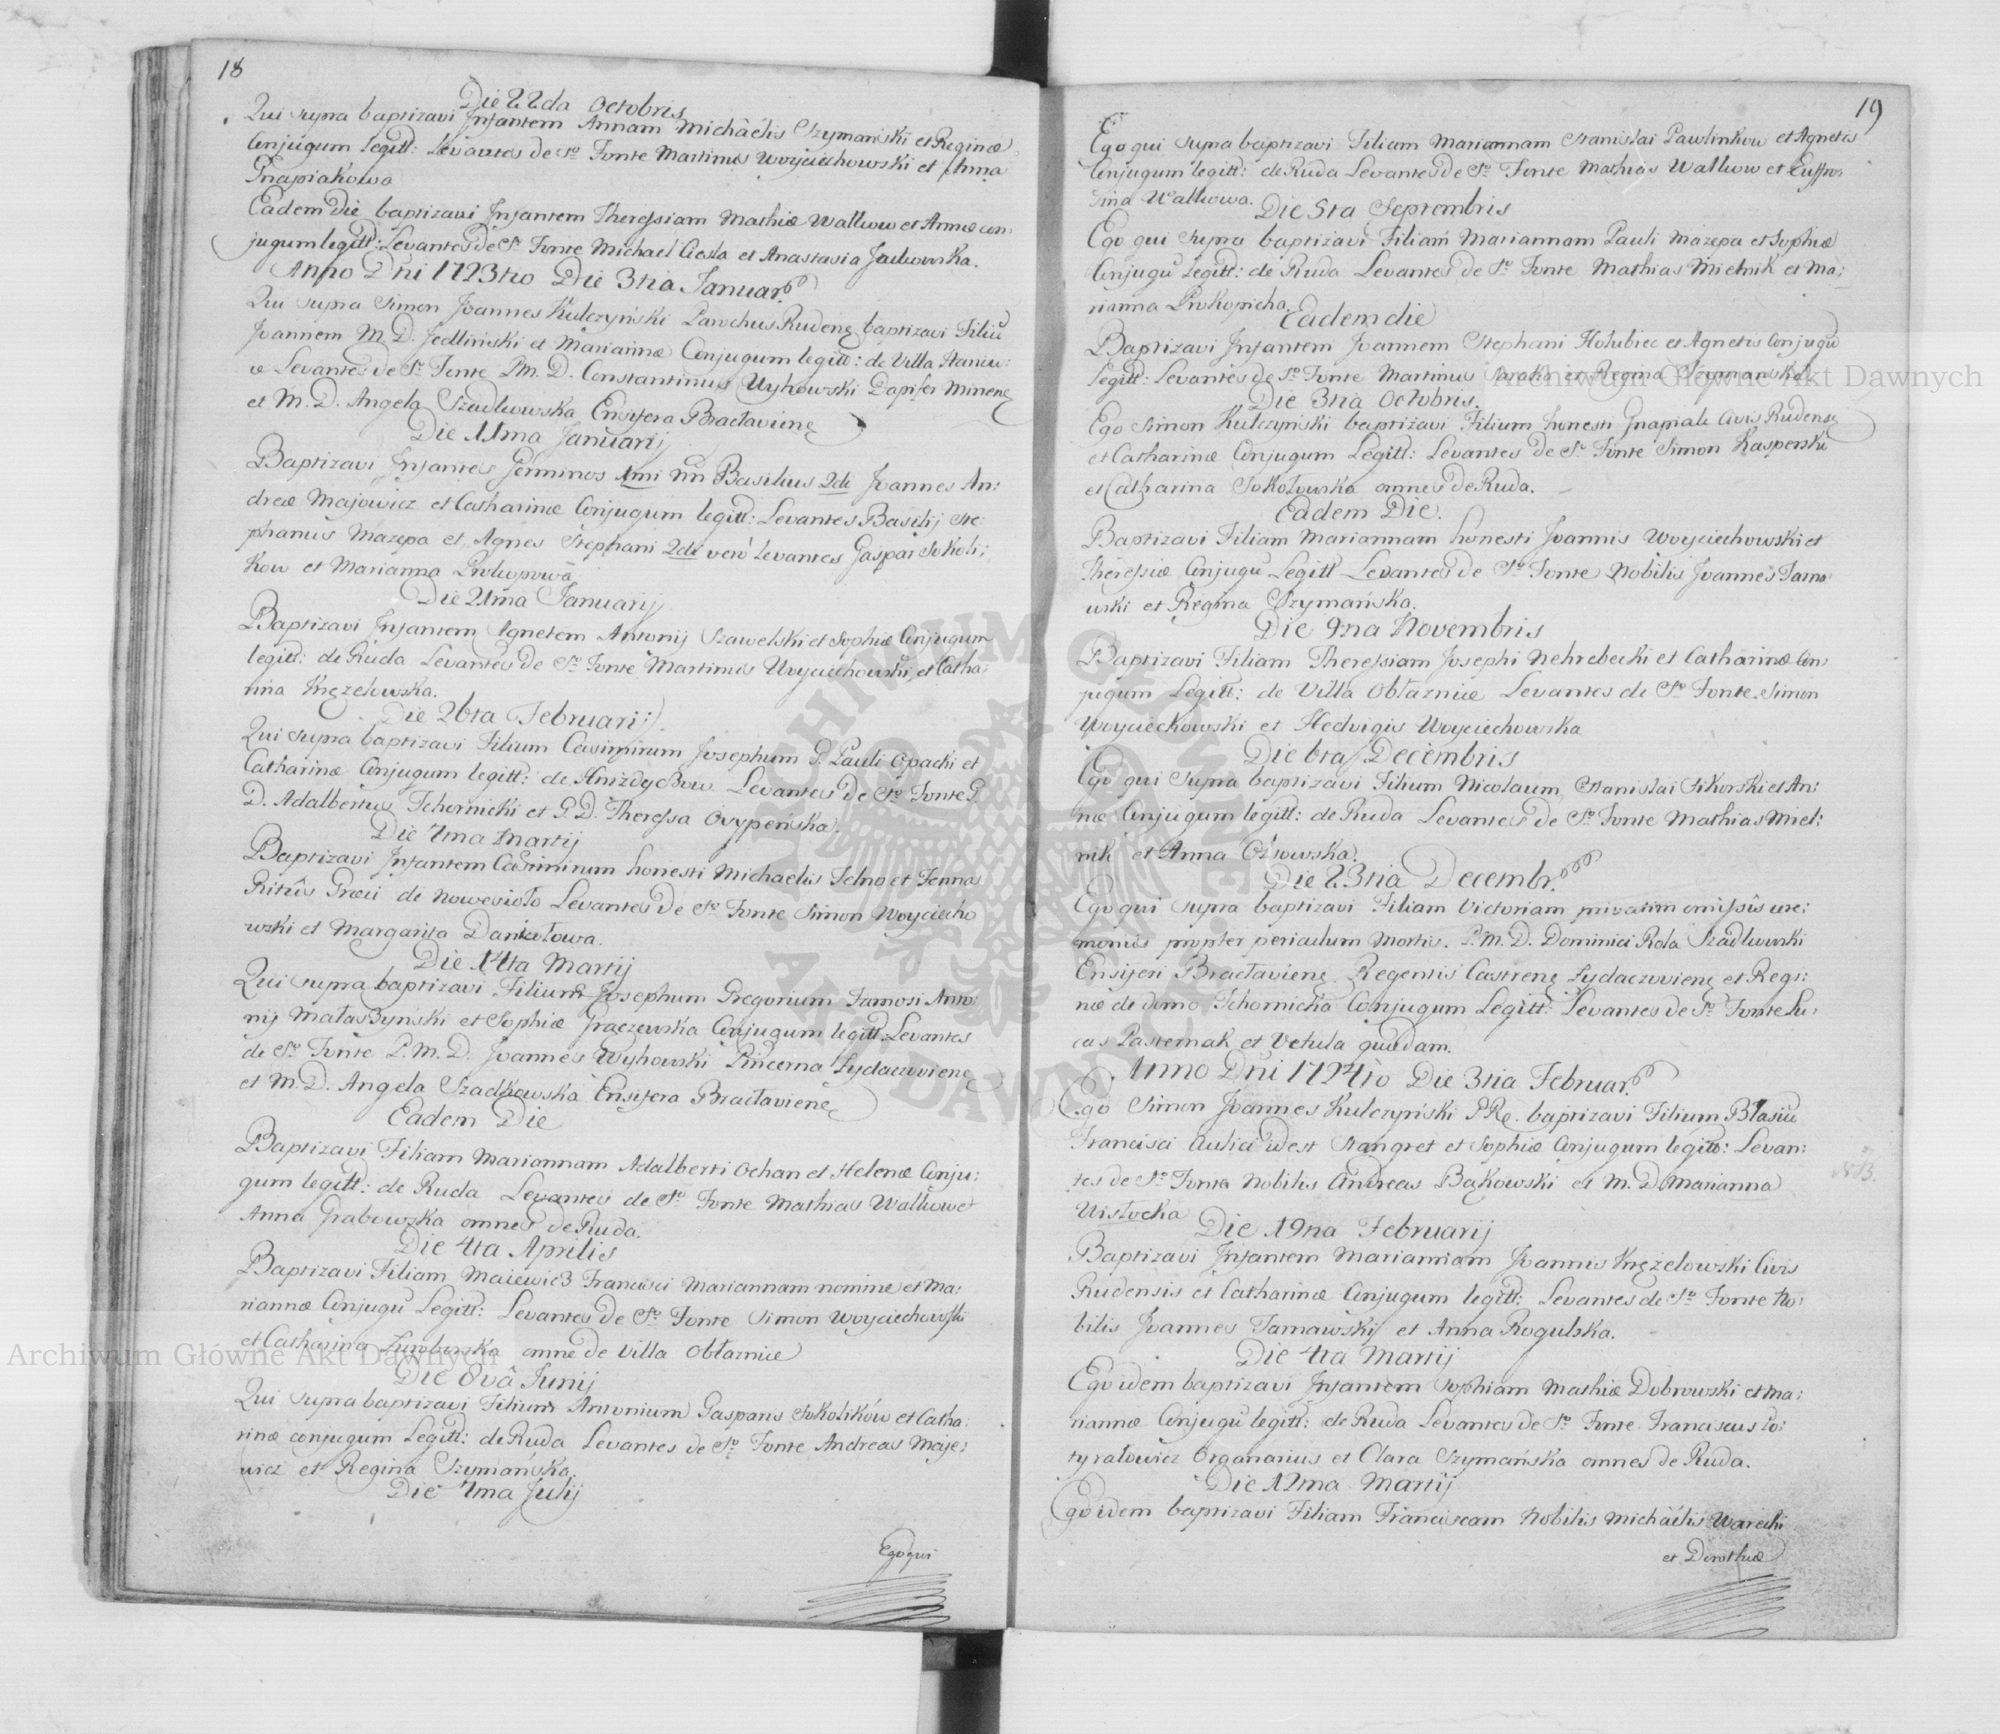 18
Die 22da Octobris
Qui supra baptizavi Infantem Annam Michaelis Szymański et Reginæ
Conjugum legitt: Levantes de Sto Fonte Martinus Woyciechowski et Anna
Gnapiakowa
Eadem Die baptizavi Infantem Theressiam Mathiæ Walkow et Annæ con:
jugum legitt: Levantes de Sto Fonte Michael Ciesla et Anastasia
Anno Dni 1723tio Die 3tia Januar.
Qui supra Simon Joannes Kulczyński Parochus Rudenę baptizavi Filiū
Joannem M. D. Jedliński et Mariannæ Conjugum legitt: de Villa
Levantes de Sto Fonte P. M. D. Constantinus Wyhowski Dapifer Minenę
et M. D. Angela Szadkowska Ensifera Bracłavienę
Die 11ma Januarij
Baptizavi Infantes Geminos 1mi nn Basilius 2di Joannes An:
dreæ Majowicz et Catharinæ Conjugum legitt: Levantes Basilij Ste:
phanus Mazepa et Agnes Stephani 2di verò Levantes Gaspar Sokoli:
kow et Marianna
Die 21ma Januarij
Baptizavi Infantem Agnetem Antonij Szawelski et Sophiæ Conjugum
legitt: de Ruda Levantes de Sto Fonte Martinus Woyciechowski, et Catha:
rina Kręzelowska.
Die 26ta Februarij
Qui supra baptizavi Filium Casimirum Josephum P. Pauli Opacki et
Catharinæ Conjugum legitt: de Hnizdyczow Levantes de Sto Fonte P.
D. Adalbertus Tchornicki et P. D. Theressa
Die 7ma Martij
Baptizavi Infantem Casimirum honesti Michaelis et
Ritûs Græci de Nowesioło Levantes de Sto Fonte Simon Woyciecho
wski et Margarita Daniałowa.
Die 14ta Martij
Qui supra baptizavi Filium Josephum Gregorium Famosi Anto:
nij Małaszyński et Sophiæ Graczewska Conjugum legitt: Levantes
de Sto Fonte P. M. D. Joannes Wyhowski Pincerna Zydaczovienę
et M. D. Angela Szadkowska Ensifera Bracłavienę
Eadem Die
Baptizavi Filiam Mariannam Adalberti Ochan et Helenæ Conju:
gum legitt: de Ruda Levantes de Sto Fonte Mathias Walkow et
Anna Grabowska omnes de Ruda.
Die 4ta Aprilis
Baptizavi Filiam Maiewicz Francisci Mariannam nomine et Ma:
riannæ Conjugū Legitt: Levantes de Sto Fonte Simon Woyciechowski
et Catharina omne de Villa Obłaznice
Die 8vâ Junij
Qui supra baptizavi Filium Antonium Gasparis Sokolików et Catha:
rinæ conjugum Legitt: de Ruda Levantes de Sto Fonte Andreas Maje:
wicz et Regina Szymańska.
Die 7ma Julij
Ego qui
19
Ego qui supra baptizavi Filiam Mariannam Stanislai Pawlinkow et Agnetis
Conjugum legitt: de Ruda Levantes de Sto Fonte Mathias Walkow et Euffro:
sina Walkowa.
Die 5ta Septembris
Ego qui supra baptizavi Filiam Mariannam Pauli Mazepa et Sophiæ
Conjugū Legitt: de Ruda Levantes de Sto Fonte Mathias Mielnik et Ma:
rianna Prokopicha.
Eadem die
Baptizavi Infantem Joannem Stephani Holubiec et Agnetis Conjugū
Legitt: Levantes de Sto Fonte Martinus Sroka et Regina Szymańska
Die 3tia Octobris.
Ego Simon Kulczyński baptizavi Filium honesti Gnapiak Civis Rudensę
et Catharinæ Conjugum Legitt: Levantes de Sto Fonte Simon Kasperski
et Catharina Sokołowska omnes de Ruda.
Eadem Die.
Baptizavi Filiam Mariannam honesti Joannis Woyciechowski et
Theressiæ Conjugū Legitt Levantes de Sto Fonte Nobilis Joannes Tarna:
wski et Regina Szymańska.
Die 9na Novembris
Baptizavi Filiam Theressiam Josephi Nehrebecki et Catharinæ Con:
jugum Legitt: de Villa Obłaznice Levantes de Sto Fonte Simon
Woyciechowski et Hedvigis Woyciechowska
Die 6ta Decembris
Ego qui supra baptizavi Filium Nicolaum Stanislai Sikorski et An:
næ Conjugum legitt: de Ruda Levantes de Sto Fonte Mathias Miel:
nik et Anna
Die 23tia Decembr.
Ego qui supra baptizavi Filiam Victoriam privatim omissis cere:
moniis propter periculum Mortis. P. M. D. Dominici Rola Szadkowski
Ensiferi Bracłavienę Regentis Castrenę Zydaczovienę et Regi:
næ de domo Tchornicka Conjugum Legitt: Levantes de Sto Fonte Lu:
cas Pasternak et Vetula quædam.
Anno Dni 1724to Die 3tia Februar.
Ego Simon Joannes Kulczyński PRę. baptizavi Filium Blasiū
Francisci Aulici idest Stangret et Sophiæ Conjugum legitt: Levan:
tes de Sto Fonte Nobilis Andreas Bąkowski et M. D. Marianna
Wisłocka
Die 19na Februarij
Baptizavi Infantem Mariannam Joannis Kręzelowski Civis
Rudensis et Catharinæ Conjugum legitt: Levantes de Sto Fonte No:
bilis Joannes Tarnawski et Anna Rogulska.
Die 4ta Martij
Ego idem baptizavi Infantem Sophiam Mathiæ Dobrowski et Ma:
riannæ Conjugū legitt: de Ruda Levantes de Sto Fonte Franciscus
Organarius et Clara Szymańska omnes de Ruda.
Die 12ma Martij
Ego idem baptizavi Filiam Franciscam Nobilis Michaëlis Warecki
et Dorotheæ
Archiwum Główne Akt Dawnych
Archiwum Główne Akt Dawnych
ARCHIWUM GŁÓWNE AKT DAWNYCH